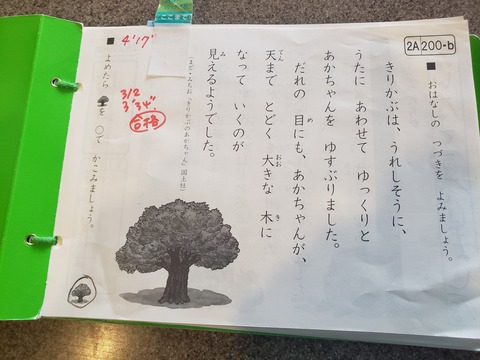 2A 200-b
■ おはなしの つづきを よみましょう。
きりかぶは、うれしそうに、
うたに あわせて ゆっくりと
あかちゃんを ゆすぶりました。
だれの 目(め)にも、あかちゃんが、
天(てん)まで とどく 大(おお)きな 木(き)に
なって いくのが
見(み)えるようでした。
(まど・みちお「きりかぶの あかちゃん」国土社)
ここまで
3/2
3'34"
合格
4'17"
■ よめたら
を ○で かこみましょう。